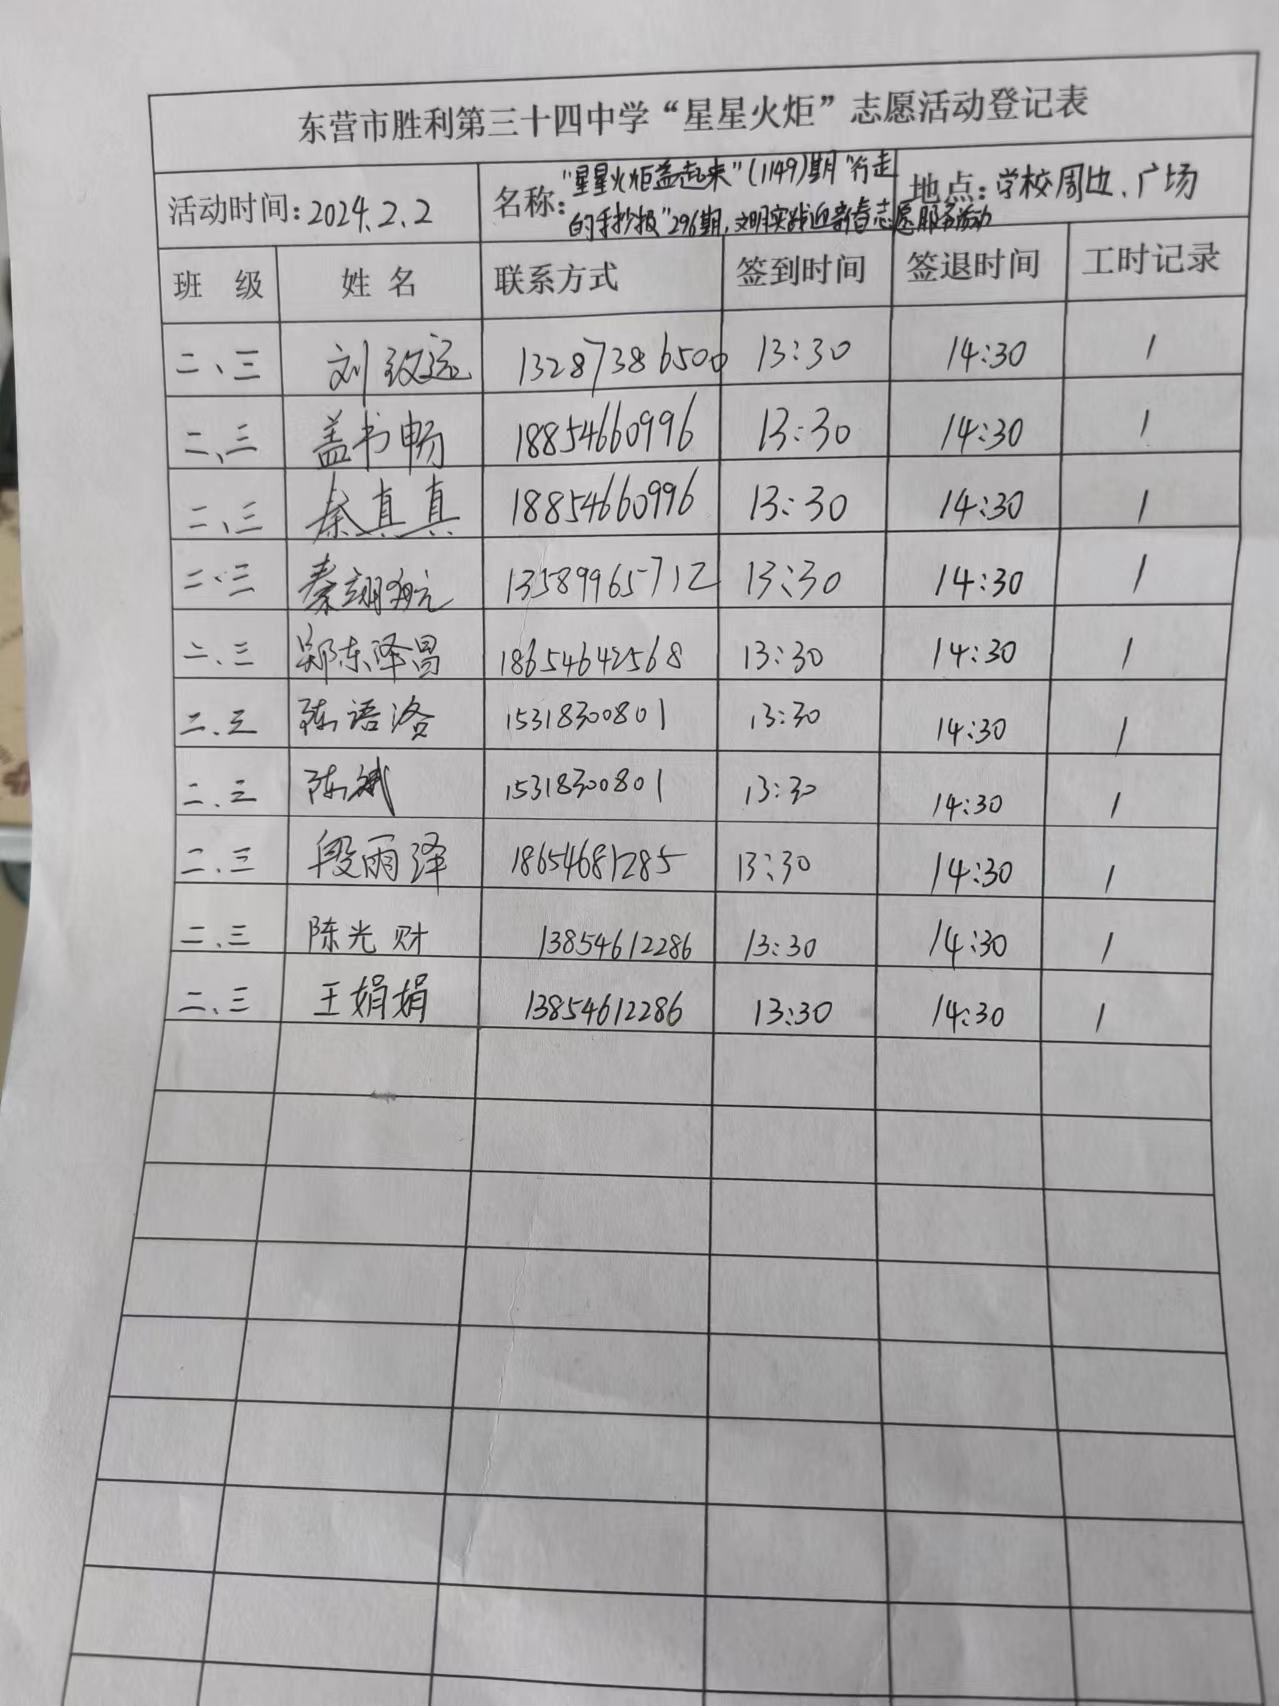 东营市胜利第三十四中学“星星火炬”志愿活动登记表
活动时间：2024.2.2 名称：“星星火炬益起来”(1149)期“行走的手抄报”296期，文明实践迎新春志愿服务活动 地点：学校周边、广场
班 级 姓 名 联系方式 签到时间 签退时间 工时记录
二、三 刘致远 13287386500 13:30 14:30 1
二、三 盖书畅 18854660996 13:30 14:30 1
二、三 秦真真 18854660996 13:30 14:30 1
二、三 秦翊航 13589965712 13:30 14:30 1
二、三 郑东泽昌 18654642568 13:30 14:30 1
二、三 陈语洛 15318300801 13:30 14:30 1
二、三 陈斌 15318300801 13:30 14:30 1
二、三 段雨泽 18654681285 13:30 14:30 1
二、三 陈光财 13854612286 13:30 14:30 1
二、三 王娟娟 13854612286 13:30 14:30 1